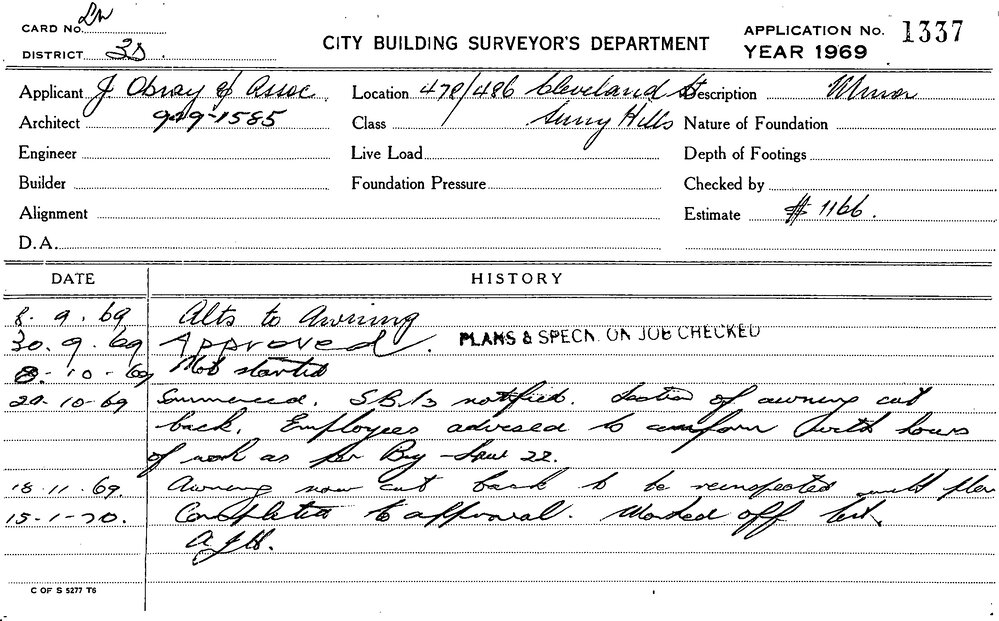 CARD No.
DISTRICT 3D.
CITY BUILDING SURVEYOR'S DEPARTMENT
APPLICATION No. 1337
YEAR 1969
Applicant J Obray & Assoc. Location 478/486 Cleveland St Description Minor
Architect 929-1585 Class Surry Hills Nature of Foundation
Engineer Live Load Depth of Footings
Builder Foundation Pressure Checked by
Alignment Estimate $1166.
D.A.
DATE HISTORY
8. 9. 69 Alts to Awning
30. 9. 69 Approved. PLANS & SPECN. ON JOB CHECKED
8. 10 - 69 Not started
20. 10. 69 Commenced. notified. Section of awning cut
back. Employees advised to conform with hours
of work as per By-Law 22.
18. 11. 69. Awning now cut back to be reinspected
15. 1. 70. Completed to approval. Marked off
C OF S 5277 T6